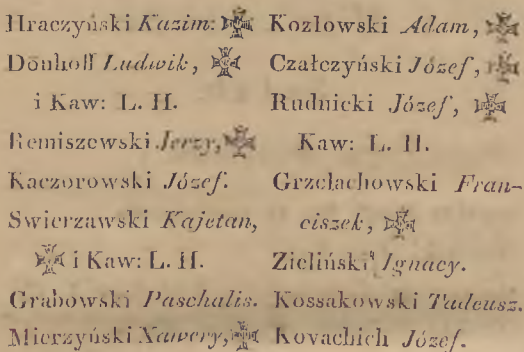 Hraczyński Kazim:
Dönhoff Ludwik,
i Kaw: L. H.
Remiszewski Jerzy,
Kaczorowski Józef.
Swierzawski Kajetan,
i Kaw: L. H.
Grabowski Paschalis.
Mierzyński Xawery,
Kozłowski Adam,
Czałczyński Józef,
Rudnicki Józef,
Kaw: L. H.
Grzelachowski Fran-
ciszek,
Zieliński Ignacy.
Kossakowski Tadeusz.
Kovachich Józef.